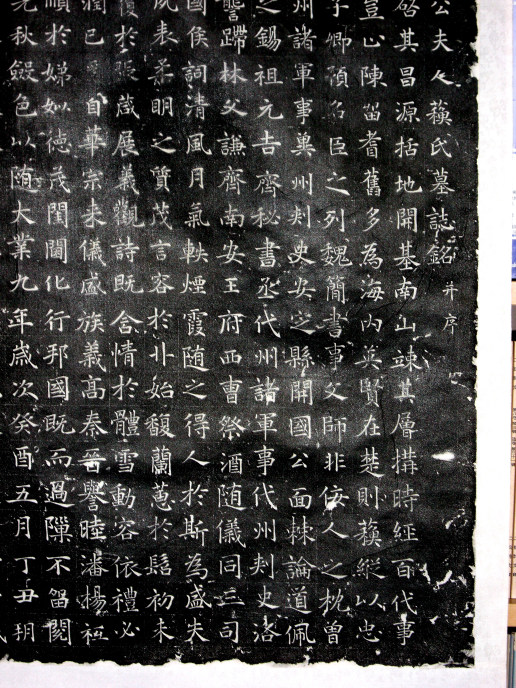 公夫人蘋氏墓誌銘并序
啓其昌源括地開基南山竦其層搆時經百代事
豈止陳留耆舊多為海内英賢在楚則蘋縱以忠
子卿預名臣之列魏簡書事父師非佞人之枕曾
州諸軍事兾州刾史安定縣開國公面棘論道佩
之錫祖元吉齊秘書丞代州諸軍事代州刾史洛
警蹕林父謙齊南安王府西曹祭酒随儀同三司
國侯詞清風月氣軼煙霞随之得人於斯為盛夫
夙表柔明之質茂言容於丱始馥蘭蕙於髫初未
復於張葴展義觀詩既含情於體雪動容依禮必
潤已自華宗来儀盛族義髙秦晉譽睦潘楊祗
順於娣姒徳茂閨闈化行邦國既而過隟不留閱
光秋鬒色以随大業九年嵗次癸酉五月丁丑玥